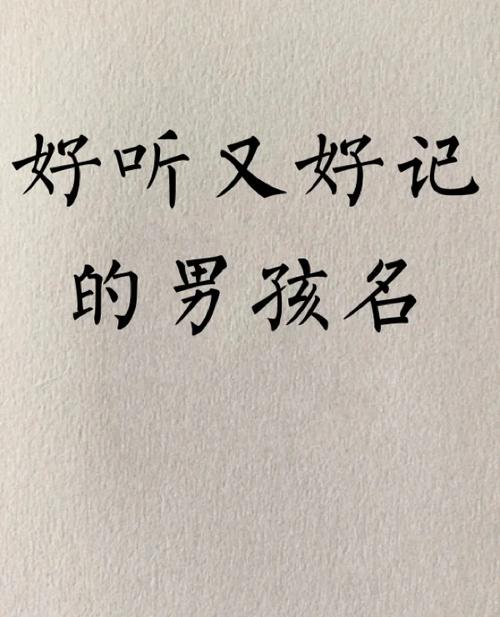 好听又好记
的男孩名